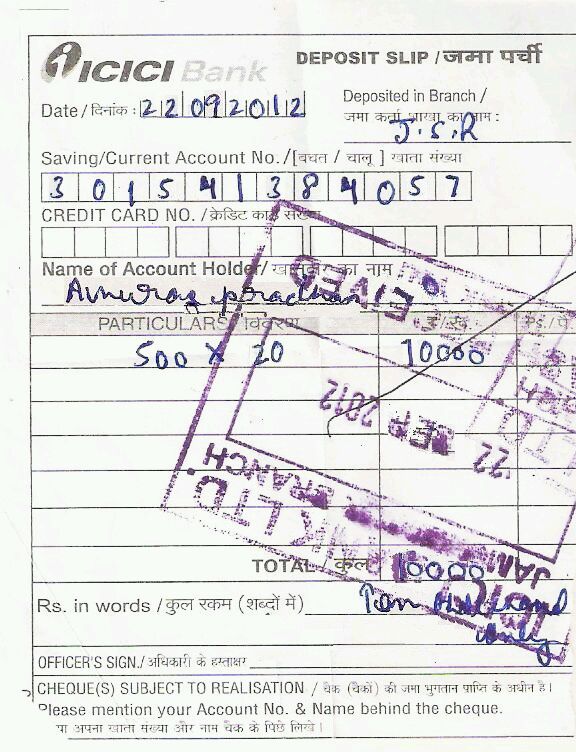 ICICI Bank
DEPOSIT SLIP / जमा पर्ची
Date / दिनांक : 22092012
Deposited in Branch /
जमा कर्ता शाखा का नाम :
J.S.R
Saving/Current Account No./[बचत / चालू ] खाता संख्या
301541384057
CREDIT CARD NO. / क्रेडिट कार्ड संख्या
Name of Account Holder/ खातेदार का नाम
Anurag pradhan
PARTICULARS/ विवरण रु./Rs. Ps./पै
500 X 20 10000
22 SEP 2012
BRANCH
TOTAL / कुल 10000
Rs. in words / कुल रकम (शब्दों में) Ten thousand
only
OFFICER'S SIGN./ अधिकारी के हस्ताक्षर
CHEQUE(S) SUBJECT TO REALISATION / चैक (चैकों) की जमा भुगतान प्राप्ति के अधीन है।
Please mention your Account No. & Name behind the cheque.
अपना खाता संख्या और नाम चैक के पिछे लिखे।